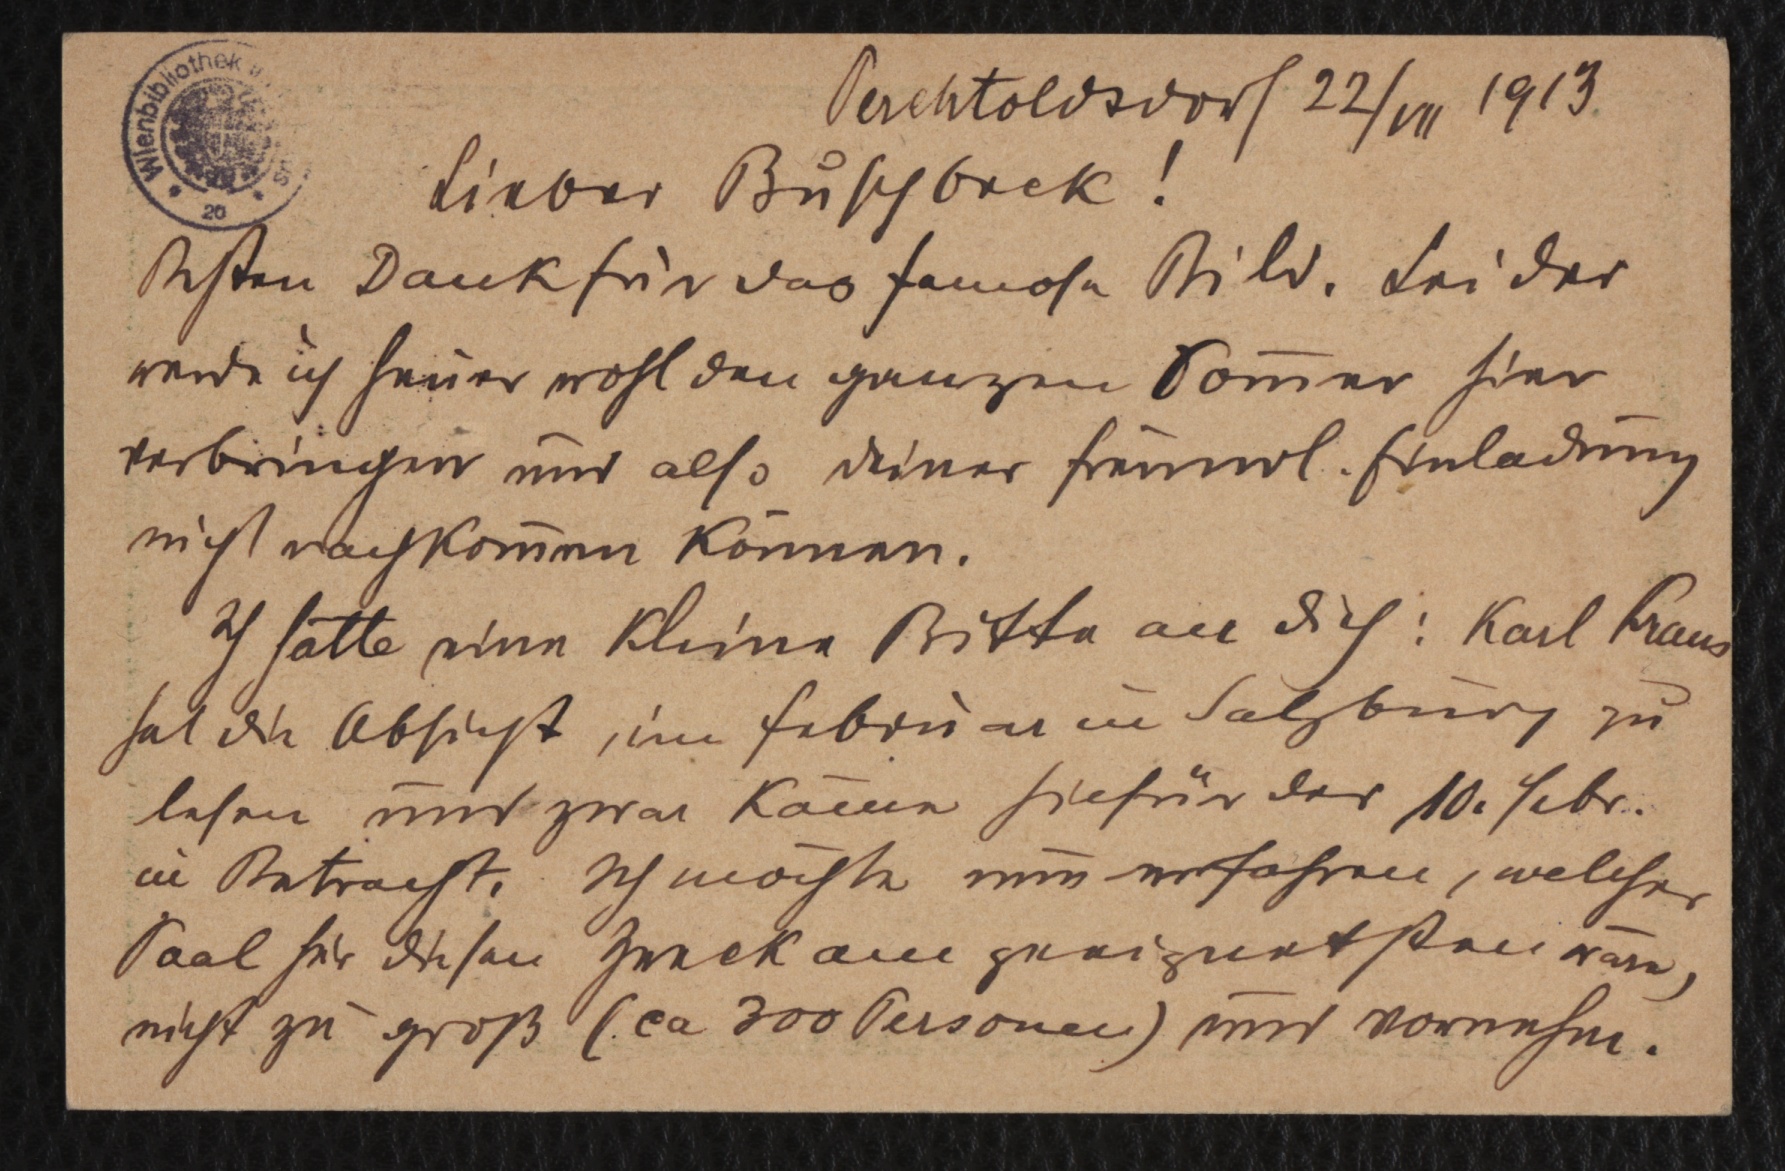 Wienbibliothek
20
Perchtoldsdorf 22/VII 1913
Lieber Buschbeck!
Besten Dank für das famose Bild. Leider
werde ich heuer wohl den ganzen Som̅er hier
verbringen und also deiner freundl. Einladung
nicht nachkom̅en können.
Ich hätte eine kleine Bitte an dich: Karl Kraus
hat die Absicht, im Februar in Salzburg zu
lesen und zwar käme hiefür der 10. Febr.
in Betracht. Ich möchte nun erfahren, welcher
Saal für diesen Zweck am geeignetsten wäre,
nicht zu groß (ca 300 Personen) und vornehm.